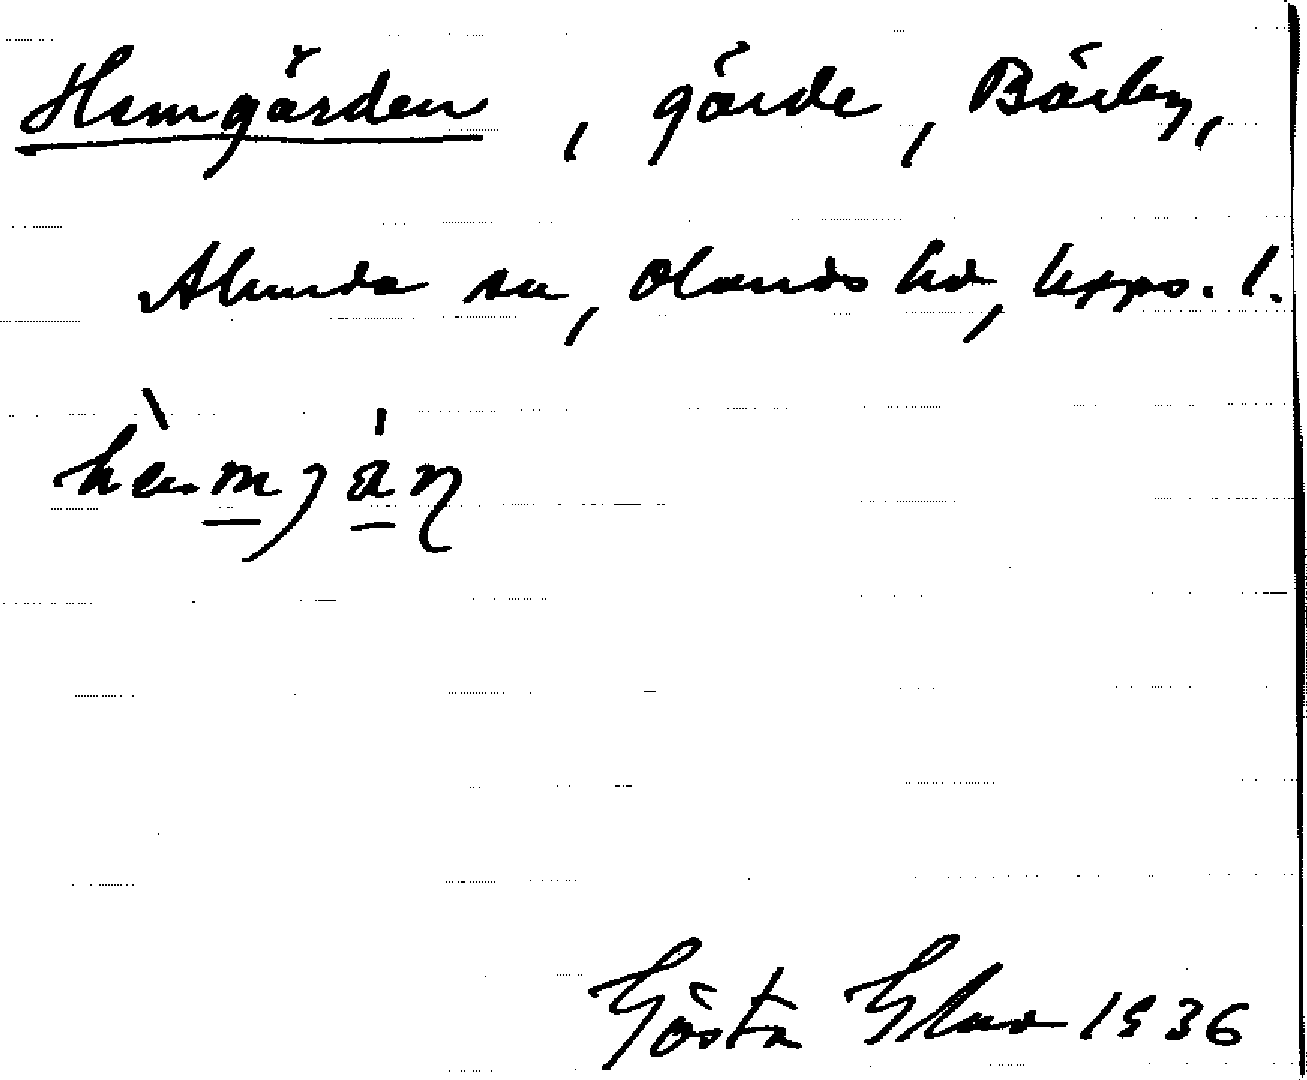 Hemgärden, gärde, Bärby,
Alunda sn, Olands hd, Upps. l.
hèmjáṇ
Gösta Glad 1936